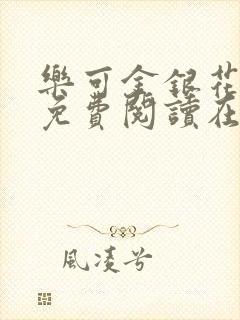 樂可金銀花
免費閱讀在
風凌兮